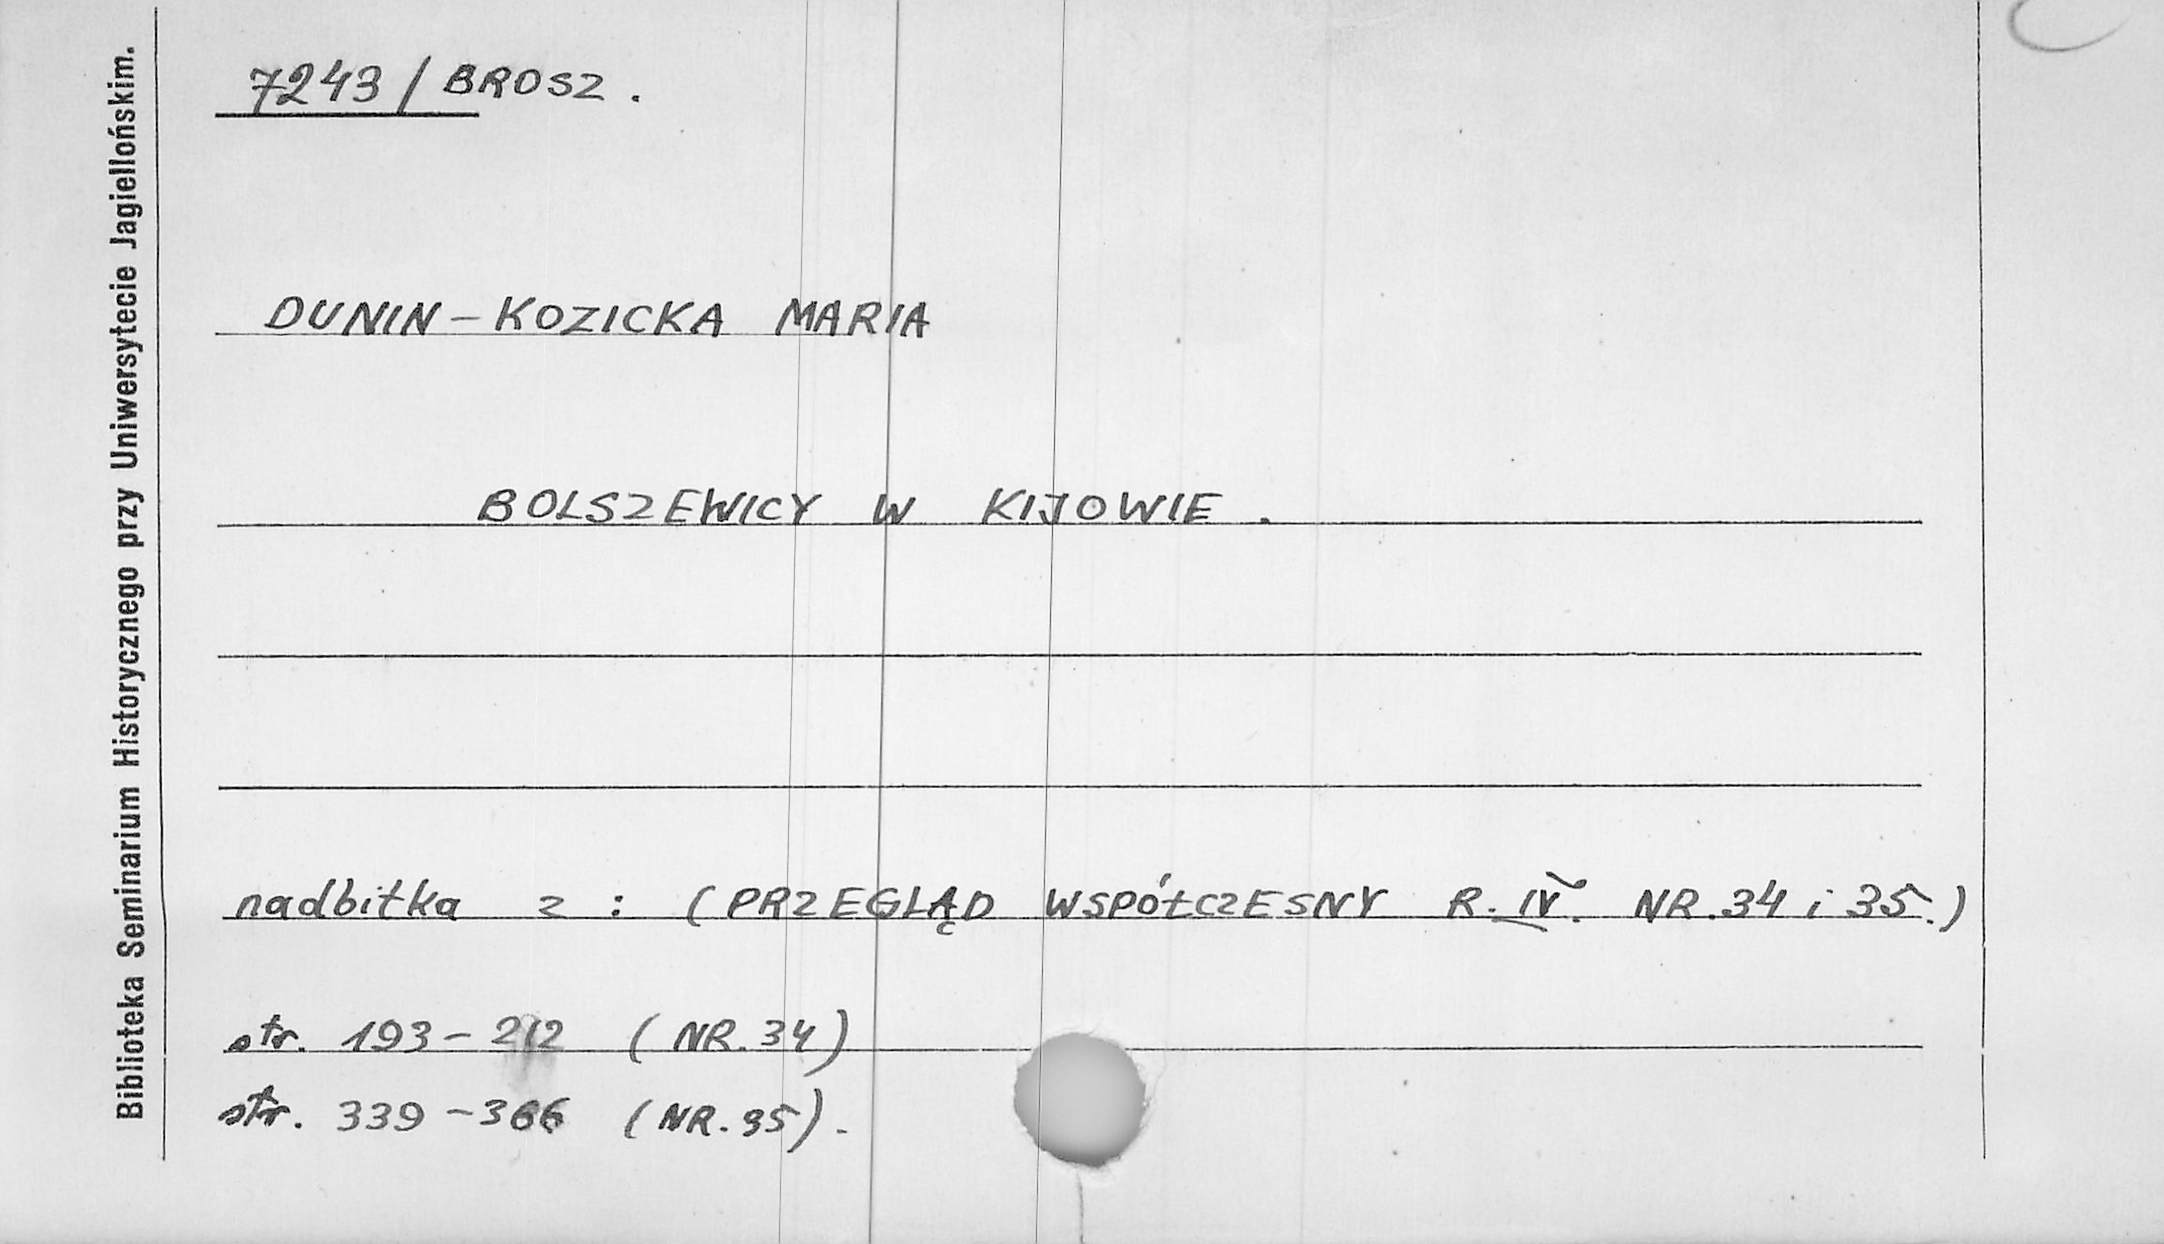 Biblioteka Seminarium Historycznego przy Uniwersytecie Jagiellońskim.
7243 / BROSZ.
DUNIN-KOZICKA MARIA
BOLSZEWICY W KIJOWIE.
nadbitka z : (PRZEGLĄD WSPÓŁCZESNY R. IV. NR. 34 i 35.)
str. 193-212 (NR. 34)
str. 339-366 (NR. 35).